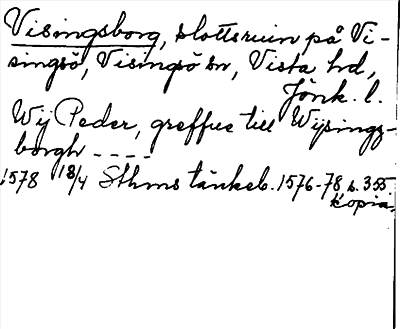 Visingsborg, slottsruin på Vi-
singsö, Visingsö sn, Vista hd,
Jönk. l.
Wij Peder, greffue till Wijsingz-
borgh ----
1578 18/4 Sthms tänkeb. 1576-78 s. 355
kopia.